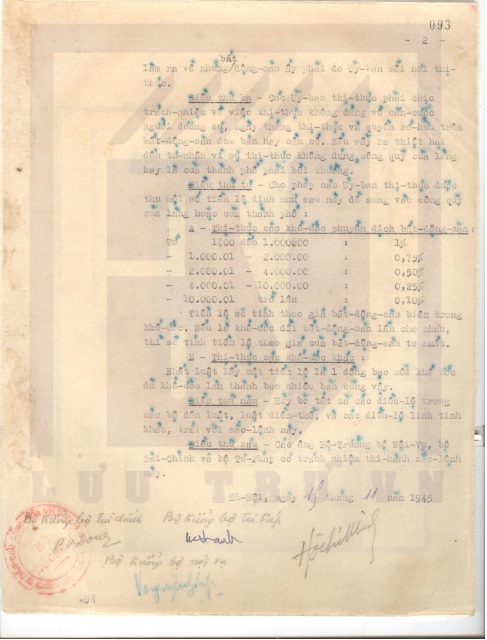 093
- 2 -
bất
làm ra về những động-sản ấy phải do Uỷ-ban mỗi nơi thị-
thực.
Điều thứ ba - Các Uỷ-ban thị-thực phải chịu
trách-nhiệm về việc thị-thực không đúng về căn-cước
người đương sự, ngày tháng thị-thực và quyền sở-hữu trên
bất-động-sản đem bán hay cầm cố. Nếu sảy ra thiệt hại
đến tư-nhân vì sự thị-thực không đúng, công quỹ của làng
hay là của thành phố phải bồi thường.
Điều thứ tư - Cho phép các Uỷ-ban thị-thực được
thu một số tiền lệ định như sau này để sung vào công quỹ
của làng hoặc của thành phố :
A - Thị-thực các khế-ước chuyển dịch bất-động-sản:
Từ 1$00 đến 1.000$00 : 1%
- 1.000.01 - 2.000.00 : 0,75%
- 2.000.01 - 4.000.00 : 0,50%
- 4.000.01 - 10.000.00 : 0,25%
- 10.000.01 trở lên : 0,10%
Tiền lệ sẽ tính theo giá bất-động-sản biên trong
khế-ước. Nếu là khế-ước đổi bất-động-sản lẫn cho nhau,
thì sẽ tính tiền lệ theo giá của bất-động-sản to nhất.
B - Thị-thực các khế-ước khác :
Nhất luật lấy một tiền lệ là 1 đồng bạc mỗi khế ước
dù khế-ước làm thành bao nhiêu bản cũng vậy.
Điều thứ năm - Huỷ bỏ tất cả các điều-lệ trong
các bộ dân luật, luật điền-thổ, và các điều-lệ linh tinh
khác, trái với sắc-lệnh này.
Điều thứ sáu - Các ông Bộ-Trưởng bộ Nội-Vụ, bộ
Tài-Chính và bộ Tư-Pháp có trách nhiệm thi-hành sắc-lệnh
này.
LƯU TRỮ VN
Hà-Nội, ngày 15 tháng 11 năm 1945
Bộ trưởng bộ Tài chính Bộ trưởng bộ Tư Pháp
Hồ Chí Minh
Bộ trưởng bộ nội vụ